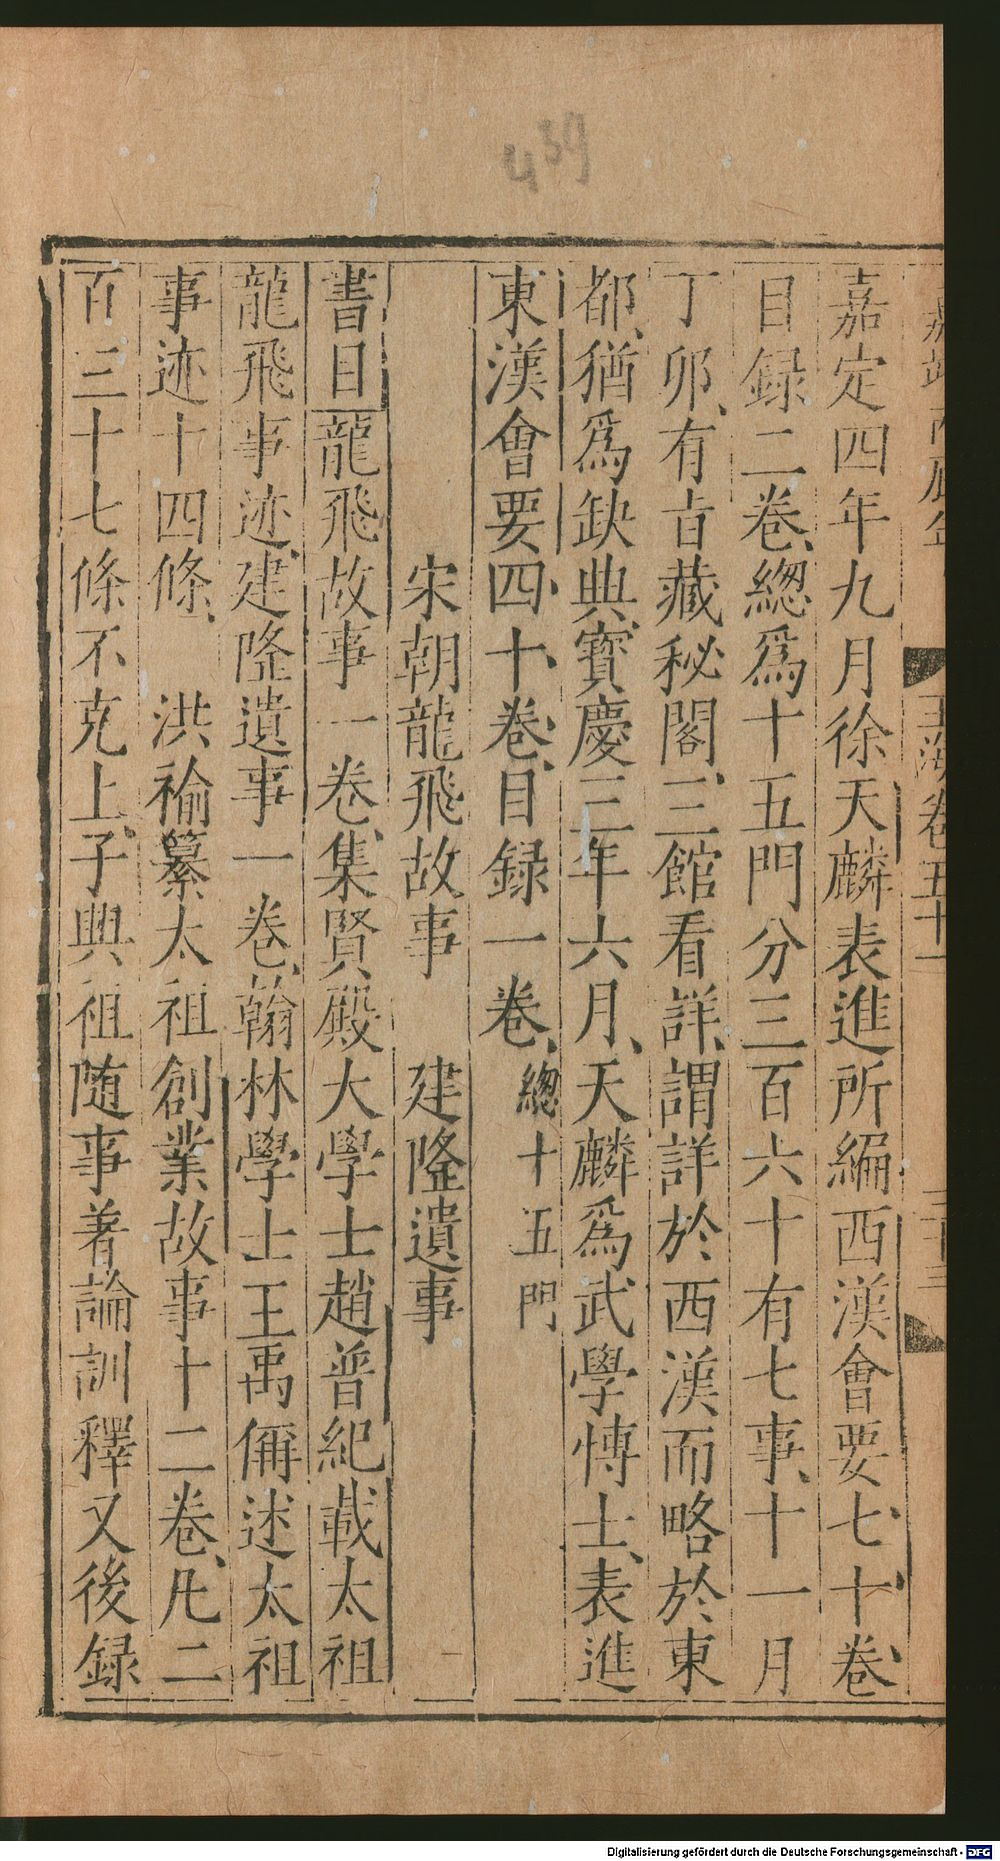 439
玉海卷五十一
嘉定四年九月徐天麟表進所編西漢會要七十卷
目録二卷、總爲十五門分三百六十有七事、十一月
丁卯、有㫖藏秘閣、三館看詳、謂詳於西漢而略於東
都、猶爲缺典、寶慶二年六月、天麟爲武學博士、表進
東漢會要四十卷、目録一卷、總十五門
宋朝龍飛故事　建隆遺事
書目龍飛故事一卷、集賢殿大學士趙普紀載太祖
龍飛事迹、建隆遺事一卷、翰林學士王禹偁述太祖
事迹十四條、　洪褕纂太祖創業故事十二卷、凡二
百三十七條不克上、子興祖随事著論訓釋又後録
Digitalisierung gefördert durch die Deutsche Forschungsgemeinschaft - DFG